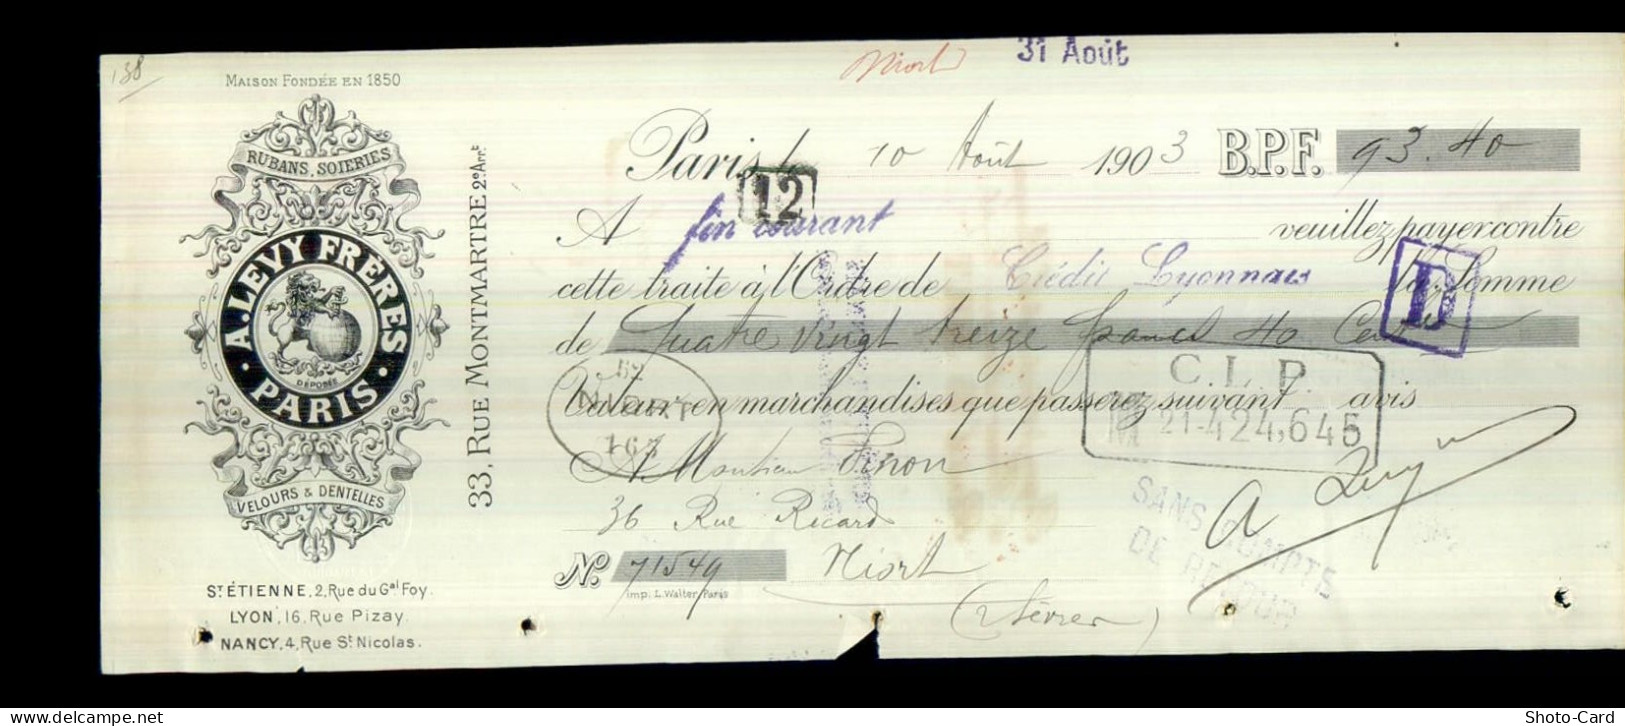 138
MAISON FONDÉE EN 1850
RUBANS, SOIERIES
A. LEVY FRÈRES
DÉPOSÉE
PARIS
VELOURS & DENTELLES
33, RUE MONTMARTRE 2e Arrt
ST ÉTIENNE, 2, Rue du Gal Foy.
LYON, 16, Rue Pizay.
NANCY, 4, Rue St Nicolas.
Niort
31 Août
Paris, le 10 Août 1903 B.P.F. 93.40
12
A fin courant veuillez payer contre
cette traite à l'Ordre de Crédit Lyonnais la Somme
B
de Quatre vingt treize francs 40 Cent
C L P
Valeur en marchandises que passerez suivant avis
NIORT
167
M 21-424,645
A Monsieur Pinon
36 Rue Ricard
SANS COMPTE
DE RETOUR
A Levy
No. 71549 Niort
imp. L. Walter, Paris
(2 Sèvres)
delcampe.net
Shoto-Card